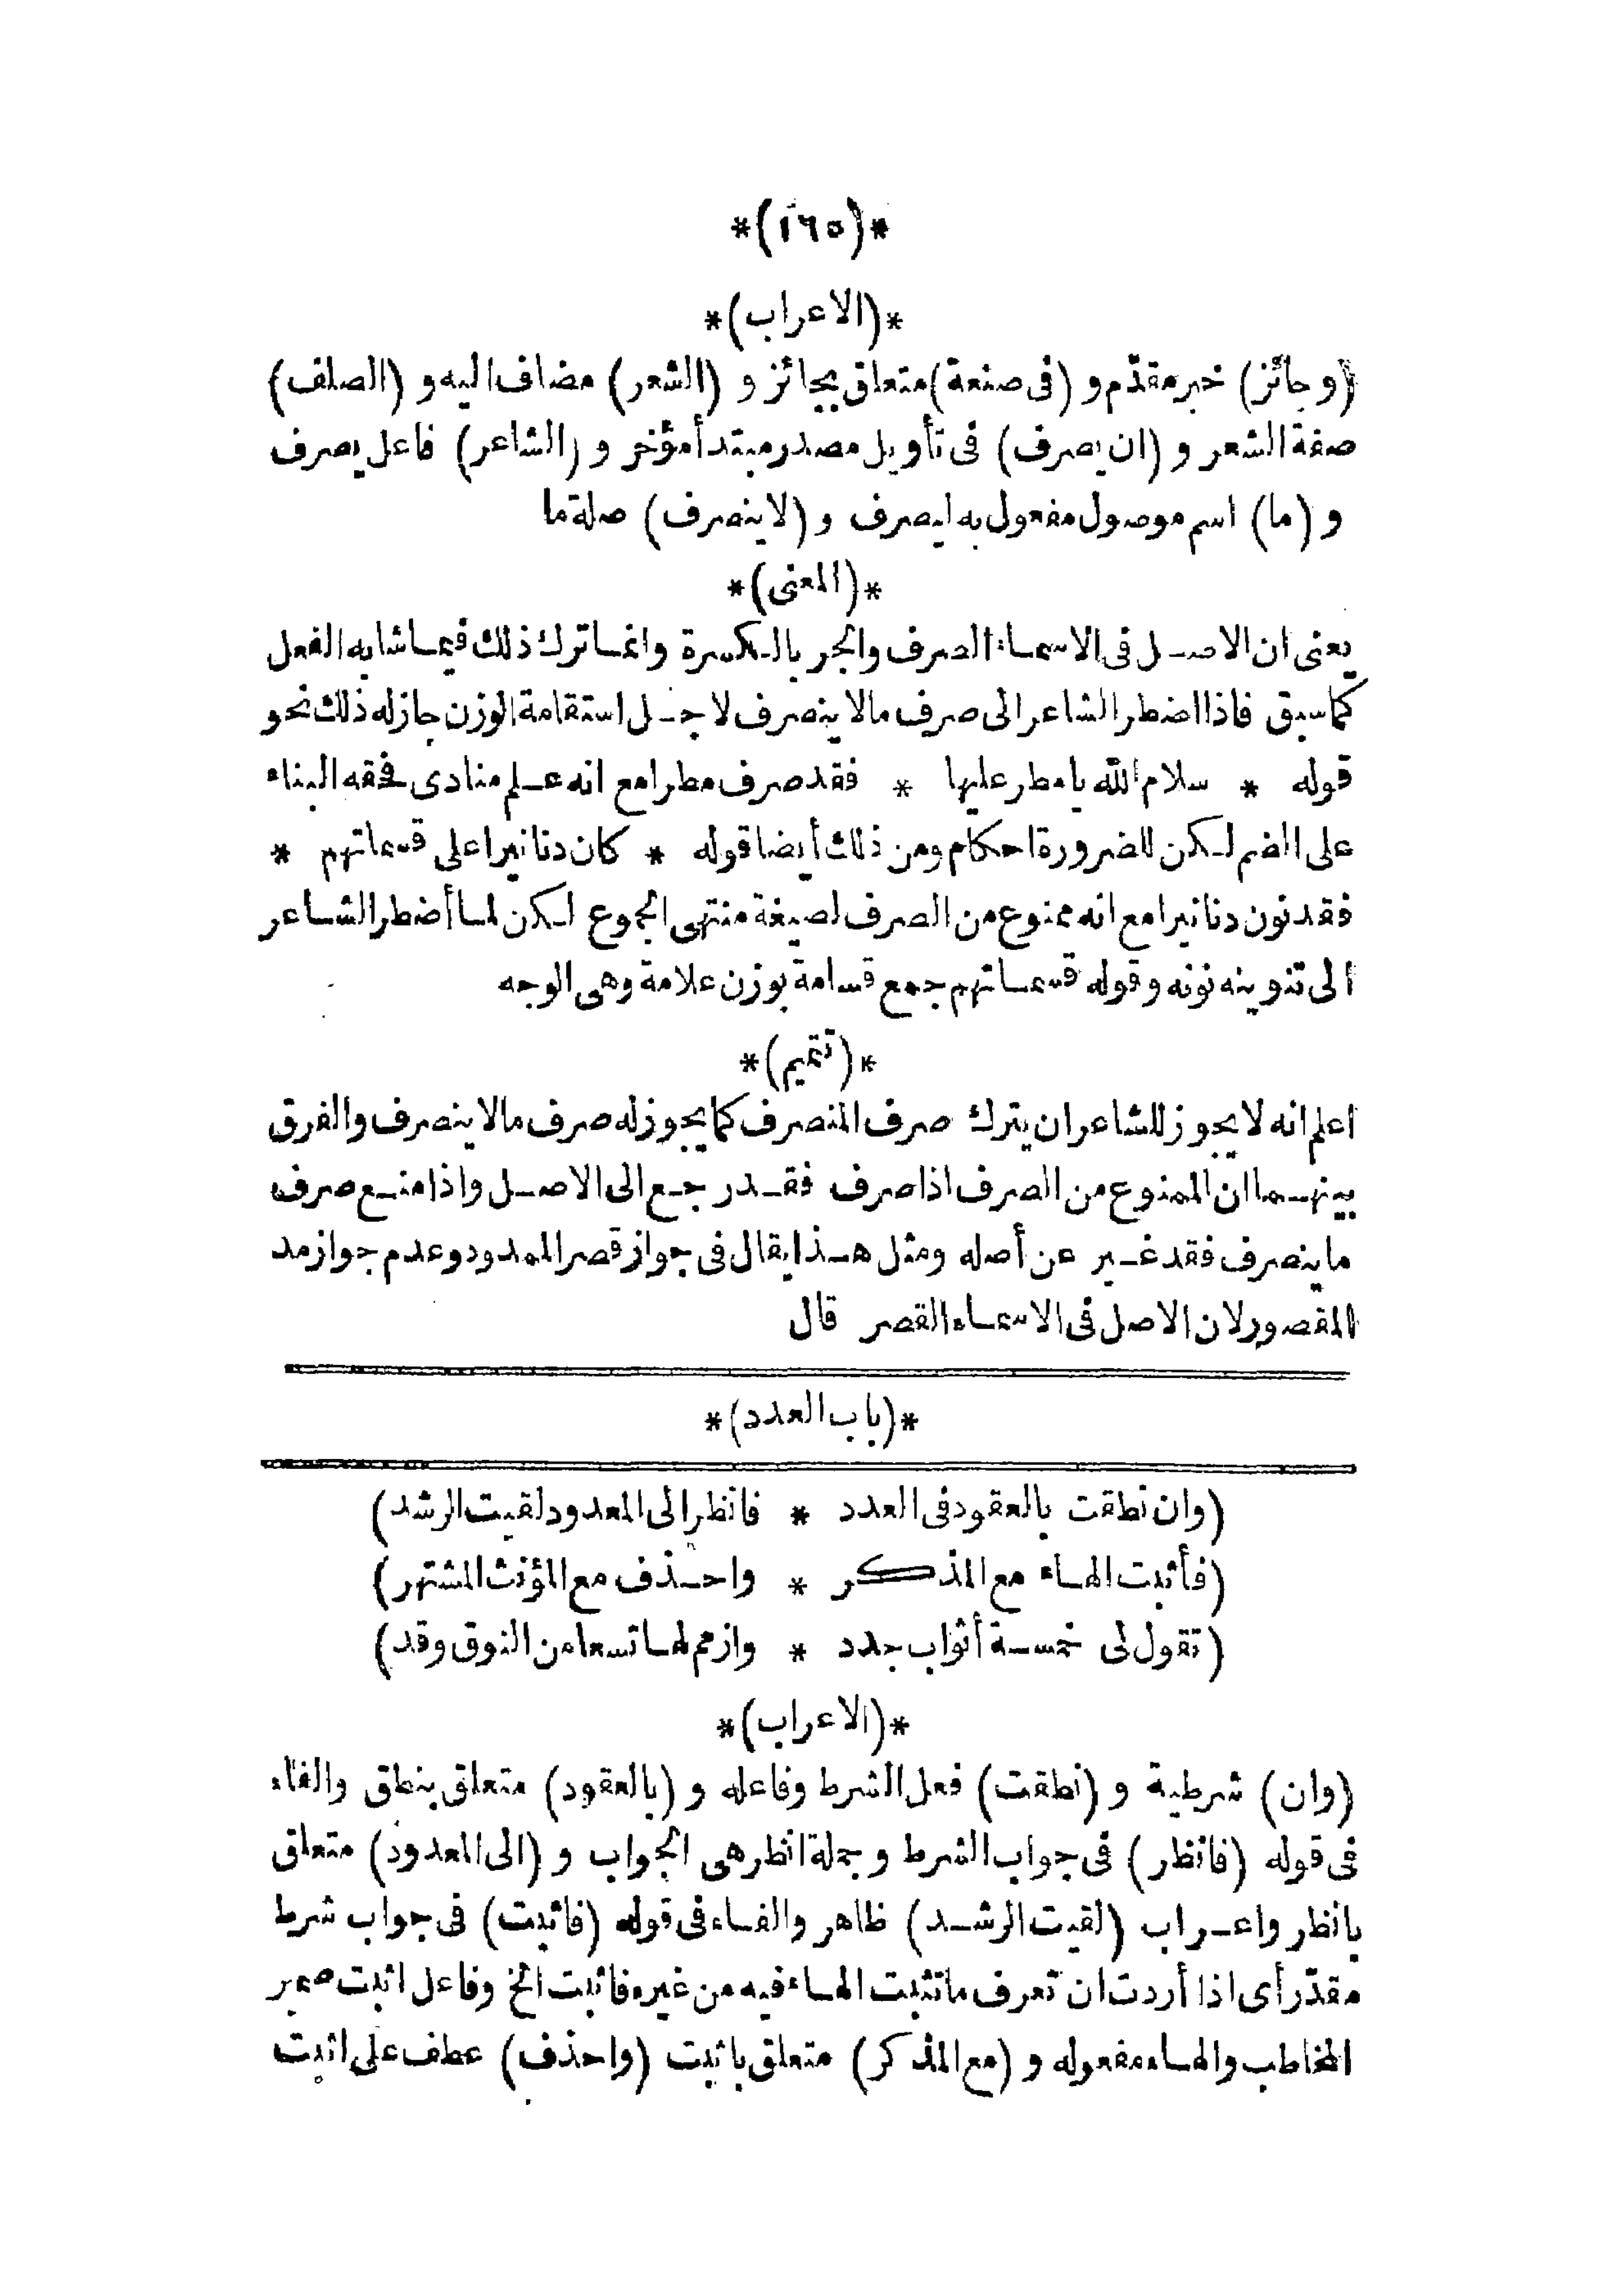 *(١٦٥)*
*(الاعراب)*
(وجائز) خبر مقدّم و (فى صنعة) متعلق بجائز و (الشعر) مضاف اليه و (الصلف)
صفة الشعر و (ان يصرف) فى تأويل مصدر مبتدأ مؤخر و (الشاعر) فاعل يصرف
و (ما) اسم موصول مفعول به ليصرف و (لا ينصرف) صلة ما
*(المعنى)*
يعنى ان الاصل فى الاسماء الصرف والجر بالكسرة وانما ترك ذلك فيما شابه الفعل
كما سبق فاذا اضطر الشاعر الى صرف مالا ينصرف لاجل استقامة الوزن جاز له ذلك نحو
قوله * سلام الله يا مطر عليها * فقد صرف مطرا مع انه علم منادى فحقه البناء
على الضم لكن للضرورة احكام ومن ذلك أيضا قوله * كان دنانيرا على قسماتهم *
فقد نون دنانيرا مع انه ممنوع من الصرف لصيغة منتهى الجموع لكن لما أضطر الشاعر
الى تنوينه نونه وقوله قسماتهم جمع قسامة بوزن علامة وهى الوجه
*(تتميم)*
اعلم انه لا يجوز للشاعر ان يترك صرف المنصرف كما يجوز له صرف مالا ينصرف والفرق
بينهما ان الممنوع من الصرف اذا صرف فقد رجع الى الاصل واذا منع صرف
ما ينصرف فقد غير عن أصله ومثل هذا يقال فى جواز قصر الممدود وعدم جواز مد
المقصور لان الاصل فى الاسماء القصر قال
*(باب العدد)*
(وان نطقت بالعقود فى العدد * فانظر الى المعدود لقيت الرشد)
(فأثبت الهاء مع المذكر * واحذف مع المؤنث المشتهر)
(تقول لى خمسة أثواب جدد * وازمم لها تسعا من النوق وقد)
*(الاعراب)*
(وان) شرطية و (نطقت) فعل الشرط وفاعله و (بالعقود) متعلق بنطق والفاء
فى قوله (فانظر) فى جواب الشرط وجملة انظر هى الجواب و (الى المعدود) متعلق
بانظر واعراب (لقيت الرشد) ظاهر والفاء فى قوله (فاثبت) فى جواب شرط
مقدّر أى اذا أردت ان تعرف ما تثبت الهاء فيه من غيره فاثبت الخ وفاعل اثبت ضمير
المخاطب والهاء مفعوله و (مع المذكر) متعلق باثبت (واحذف) عطف على اثبت